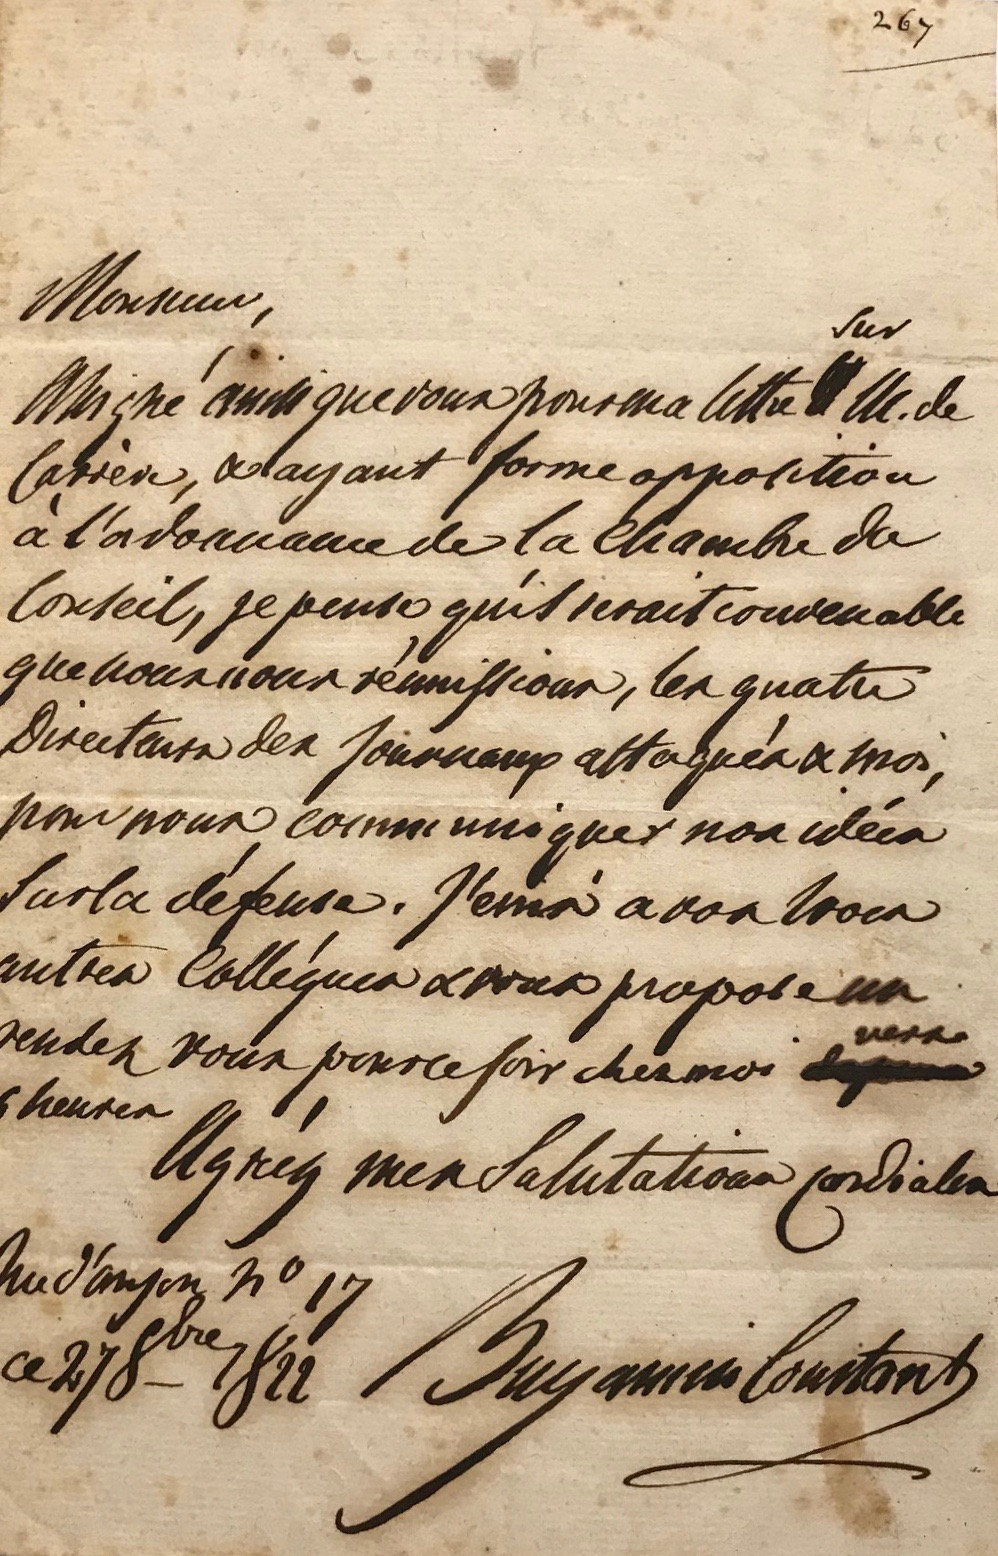 267
Monsieur,
Assigné ainsi que vous pour ma lettre sur M. de
Carrère, & ayant formé opposition
à l'ordonnance de la Chambre du
Conseil, je pense qu'il serait convenable
que nous nous réunissions, les quatre
Directeurs des Journaux attaqués & moi,
pour nous communiquer nos idées
sur la défense. J'écris à vos trois
autres Collègues & vous propose un
rendez vous pour ce soir chez moi vers
heures
Agréez mes Salutations cordiales
Rue d'anjou No 17
ce 27 8bre 1822
Benjamin Constant